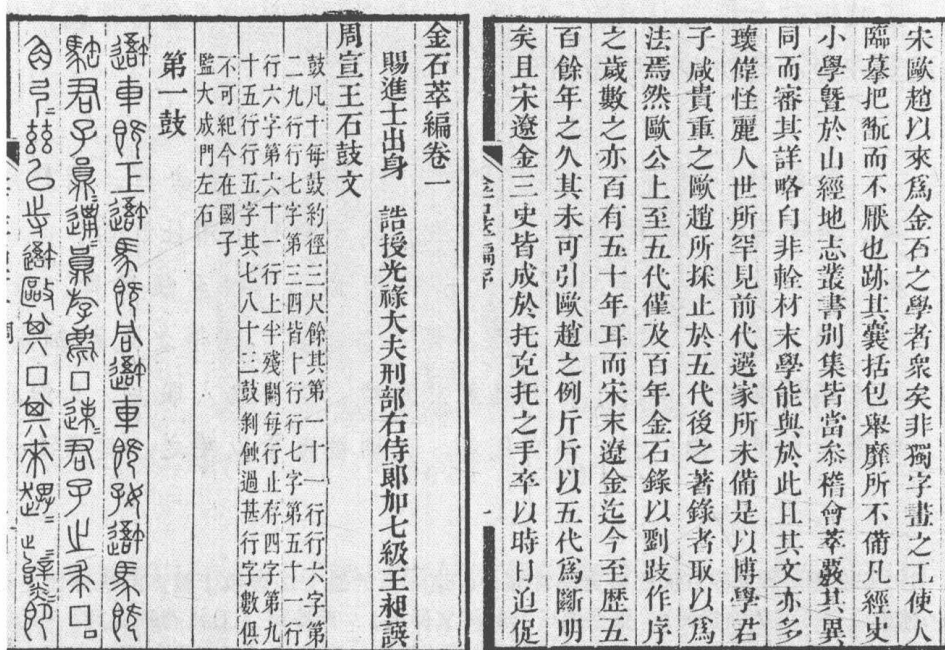 宋歐趙以來爲金石之學者衆矣非獨字畫之工使人
臨摹把翫而不厭也跡其囊括包舉靡所不備凡經史
小學曁於山經地志叢書別集皆當叅稽會萃覈其異
同而審其詳略自非輇材末學能與於此且其文亦多
瓌偉怪麗人世所罕見前代選家所未備是以博學君
子咸貴重之歐趙所採止於五代後之著錄者取以爲
法焉然歐公上至五代僅及百年金石錄以劉跂作序
之歲數之亦百有五十年耳而宋末遼金迄今至歷五
百餘年之久其未可引歐趙之例斤斤以五代爲斷明
矣且宋遼金三史皆成於托克托之手卒以時日迫促
金石萃編序
金石萃編卷一
賜進士出身　誥授光祿大夫刑部右侍郎加七級王昶譔
周宣王石鼓文
鼓凡十每鼓約徑三尺餘其第一十一行行六字第
二九行行七字第三四皆十行行七字第五十一行
行六字第六十一行上半殘闕每行止存四字第九
十五行行五字其七八十三鼓剝蝕過甚行字數俱
不可紀今在國子
監大成門左右
第一鼓
車旣工馬旣同車旣好馬旣
君子邋斿□速君子之求□
弓茲以寺敺其□其來